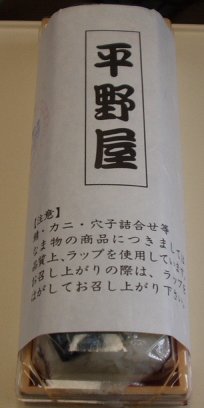 平野屋
【注意】
鯖・カニ・穴子詰合せ等
なま物の商品につきましては
品質上、ラップを使用しています。
お召し上がりの際は、ラップを
はがしてお召し上がり下さい。